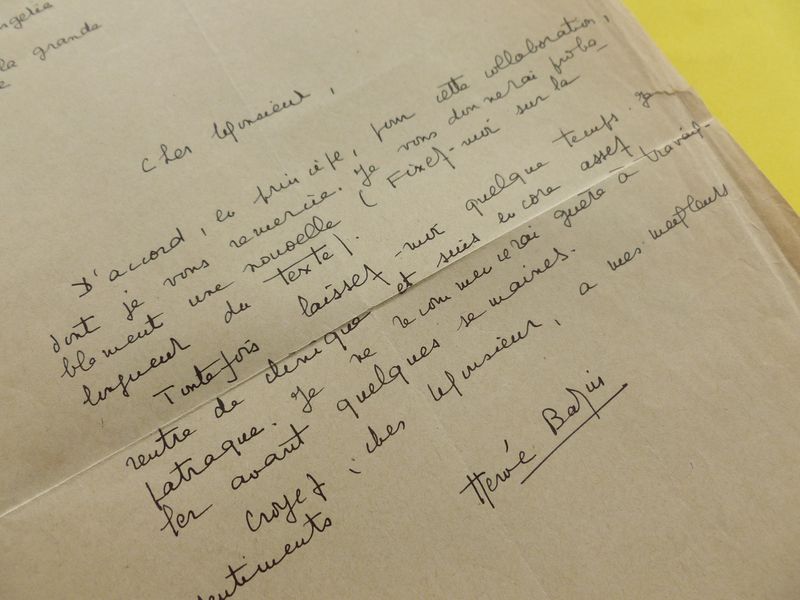 la grande
Cher Monsieur,
D'accord, en principe, pour cette collaboration,
dont je vous remercie. Je vous donnerai proba-
blement une nouvelle (Fixez-moi sur la
longueur du texte).
Toutefois laissez-moi quelque temps. Je
rentre de clinique et suis encore assez
patraque. Je ne recommencerai guère à travail-
ler avant quelques semaines.
Croyez, cher Monsieur, à mes meilleurs
sentiments
Hervé Bazin